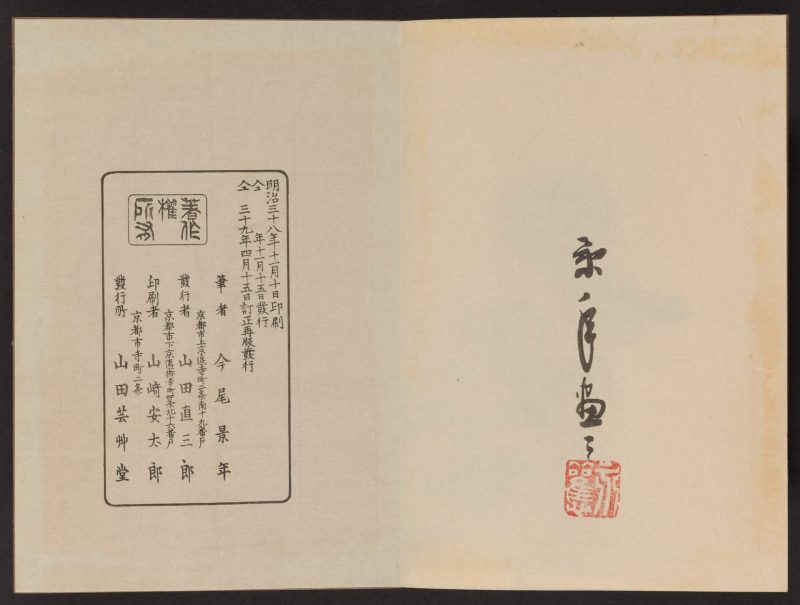 景年畫
明治三十八年十一月十日印刷
仝 年十一月十五日發行
仝 三十九年四月十五日訂正再版發行
著作
權
所有
筆者 今尾景年
京都市上京區寺町二条南十九番戸
發行者 山田直三郎
京都市下京區御幸町四条北十六番戸
印刷者 山﨑安太郎
京都市寺町二条
發行所 山田芸艸堂